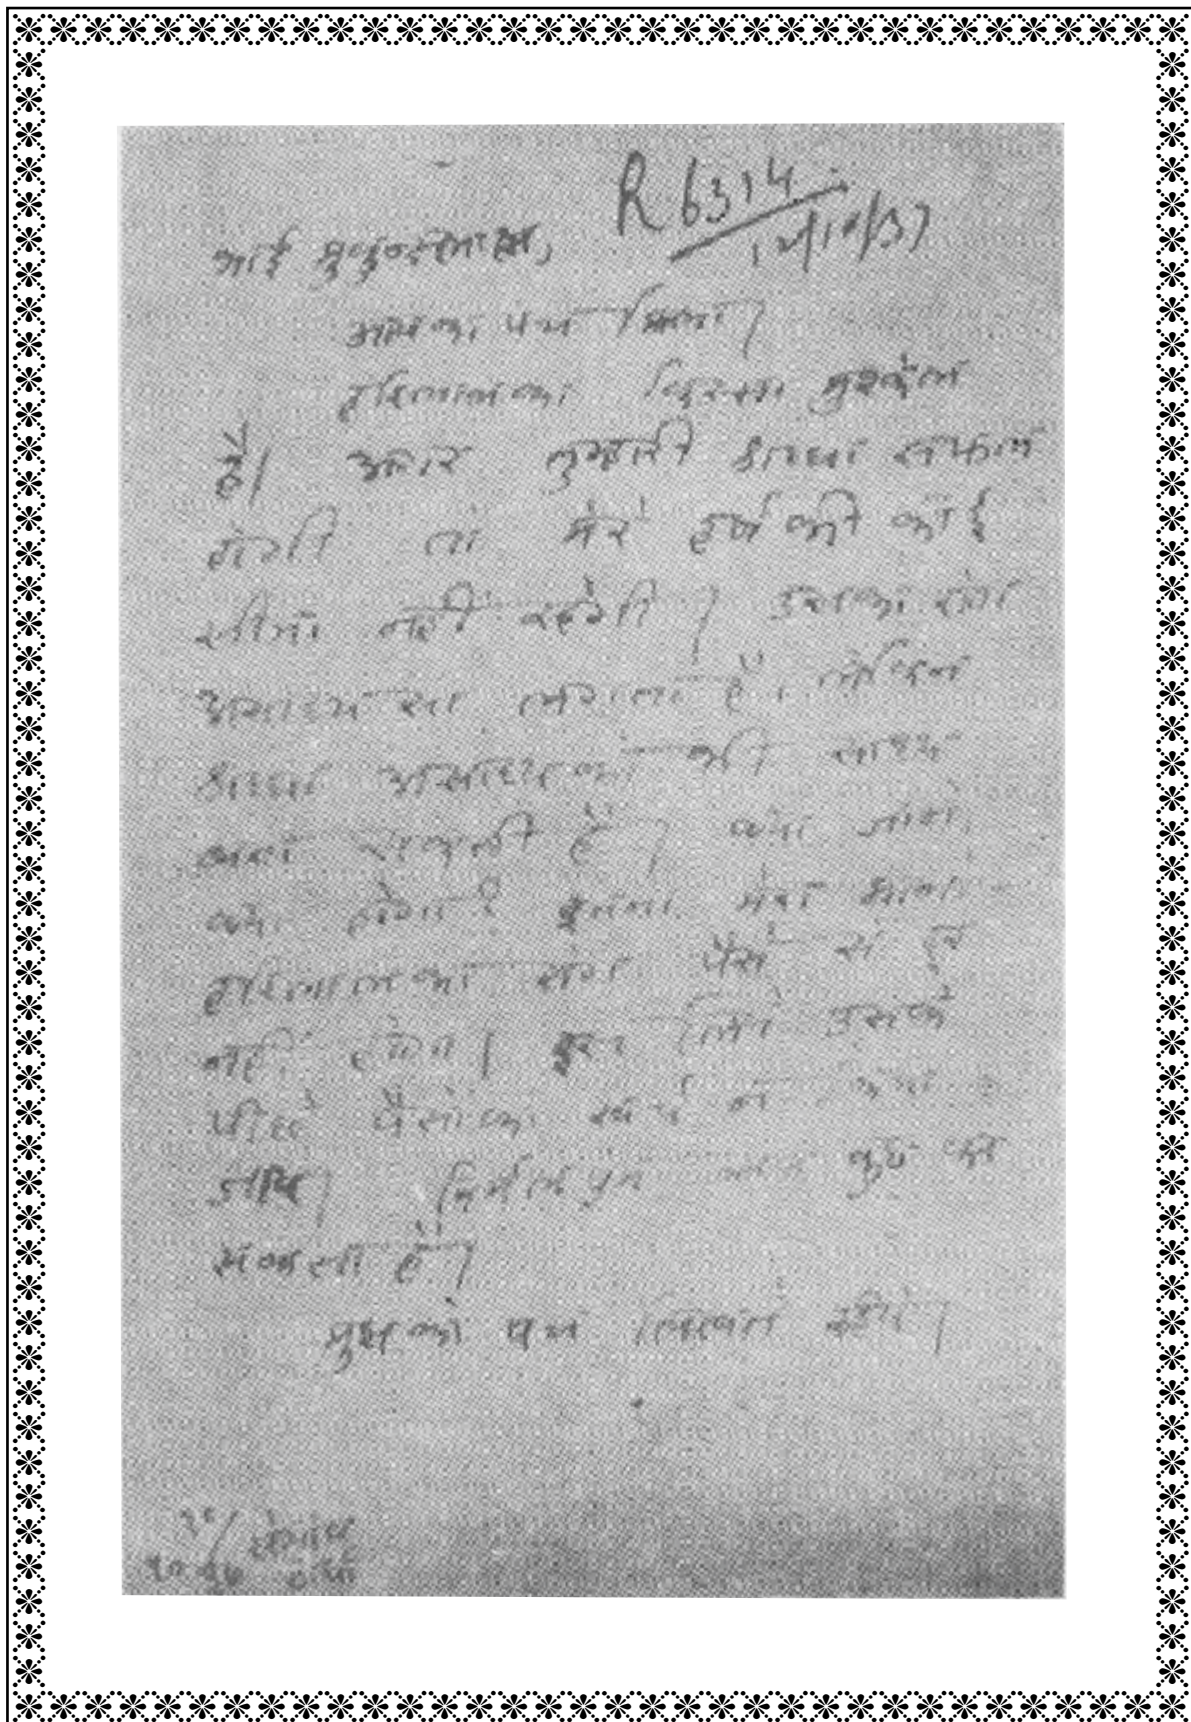 R 6314
12/10/37
भाई मुकुन्दलाल,
आपका पत्र मिला।
हरिलालका किस्सा मुश्केल
है। अगर तुम्हारी श्रध्धा सफल
होगी तो मेरे हर्ष की कोई
सीमा नहीं रहेगी। उसका रोग
असाध्य सा लगता है। लेकिन
श्रध्धा असाध्य को भी साध्य
बना सकती है। क्या जाने
क्या होगा? इतना मेरा मानो
हरिलालका रोग पैसे से दूर
नहीं होगा। इस लिये उसके
पीछे पैसोंका खर्च न
निर्मल प्रेम कुछ कर
सकता है।
मुझको पत्र लिखते रहीये।